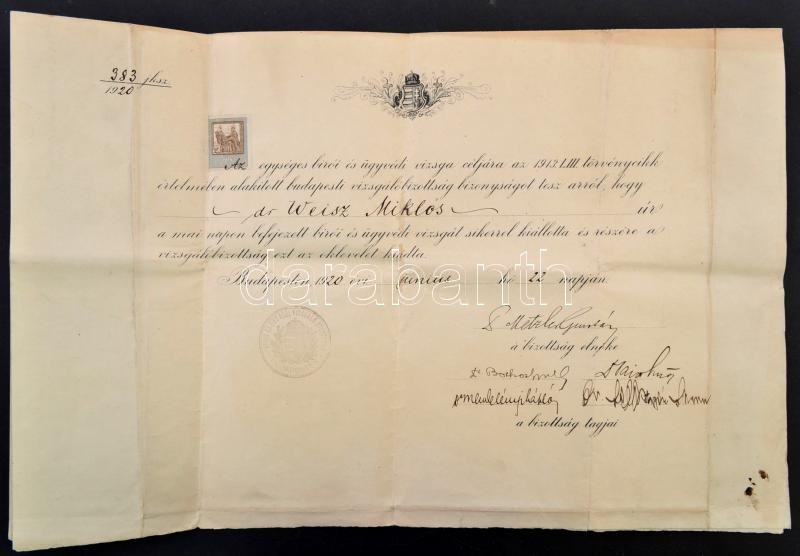 383
1920
Az egységes birói és ügyvédi vizsga céljára az 1913:LIII. törvénycikk
értelmében alakított budapesti vizsgálóbizottság bizonyságot tesz arról, hogy
dr Weisz Miklós úr
a mai napon befejezett birói és ügyvédi vizsgát sikerrel kiállotta és részére a
vizsgálóbizottság ezt az oklevelet kiadta.
Budapesten, 1920 évi junius hó 22 napján.
darabanth
a bizottság elnöke
Dr
Dr.
a bizottság tagjai